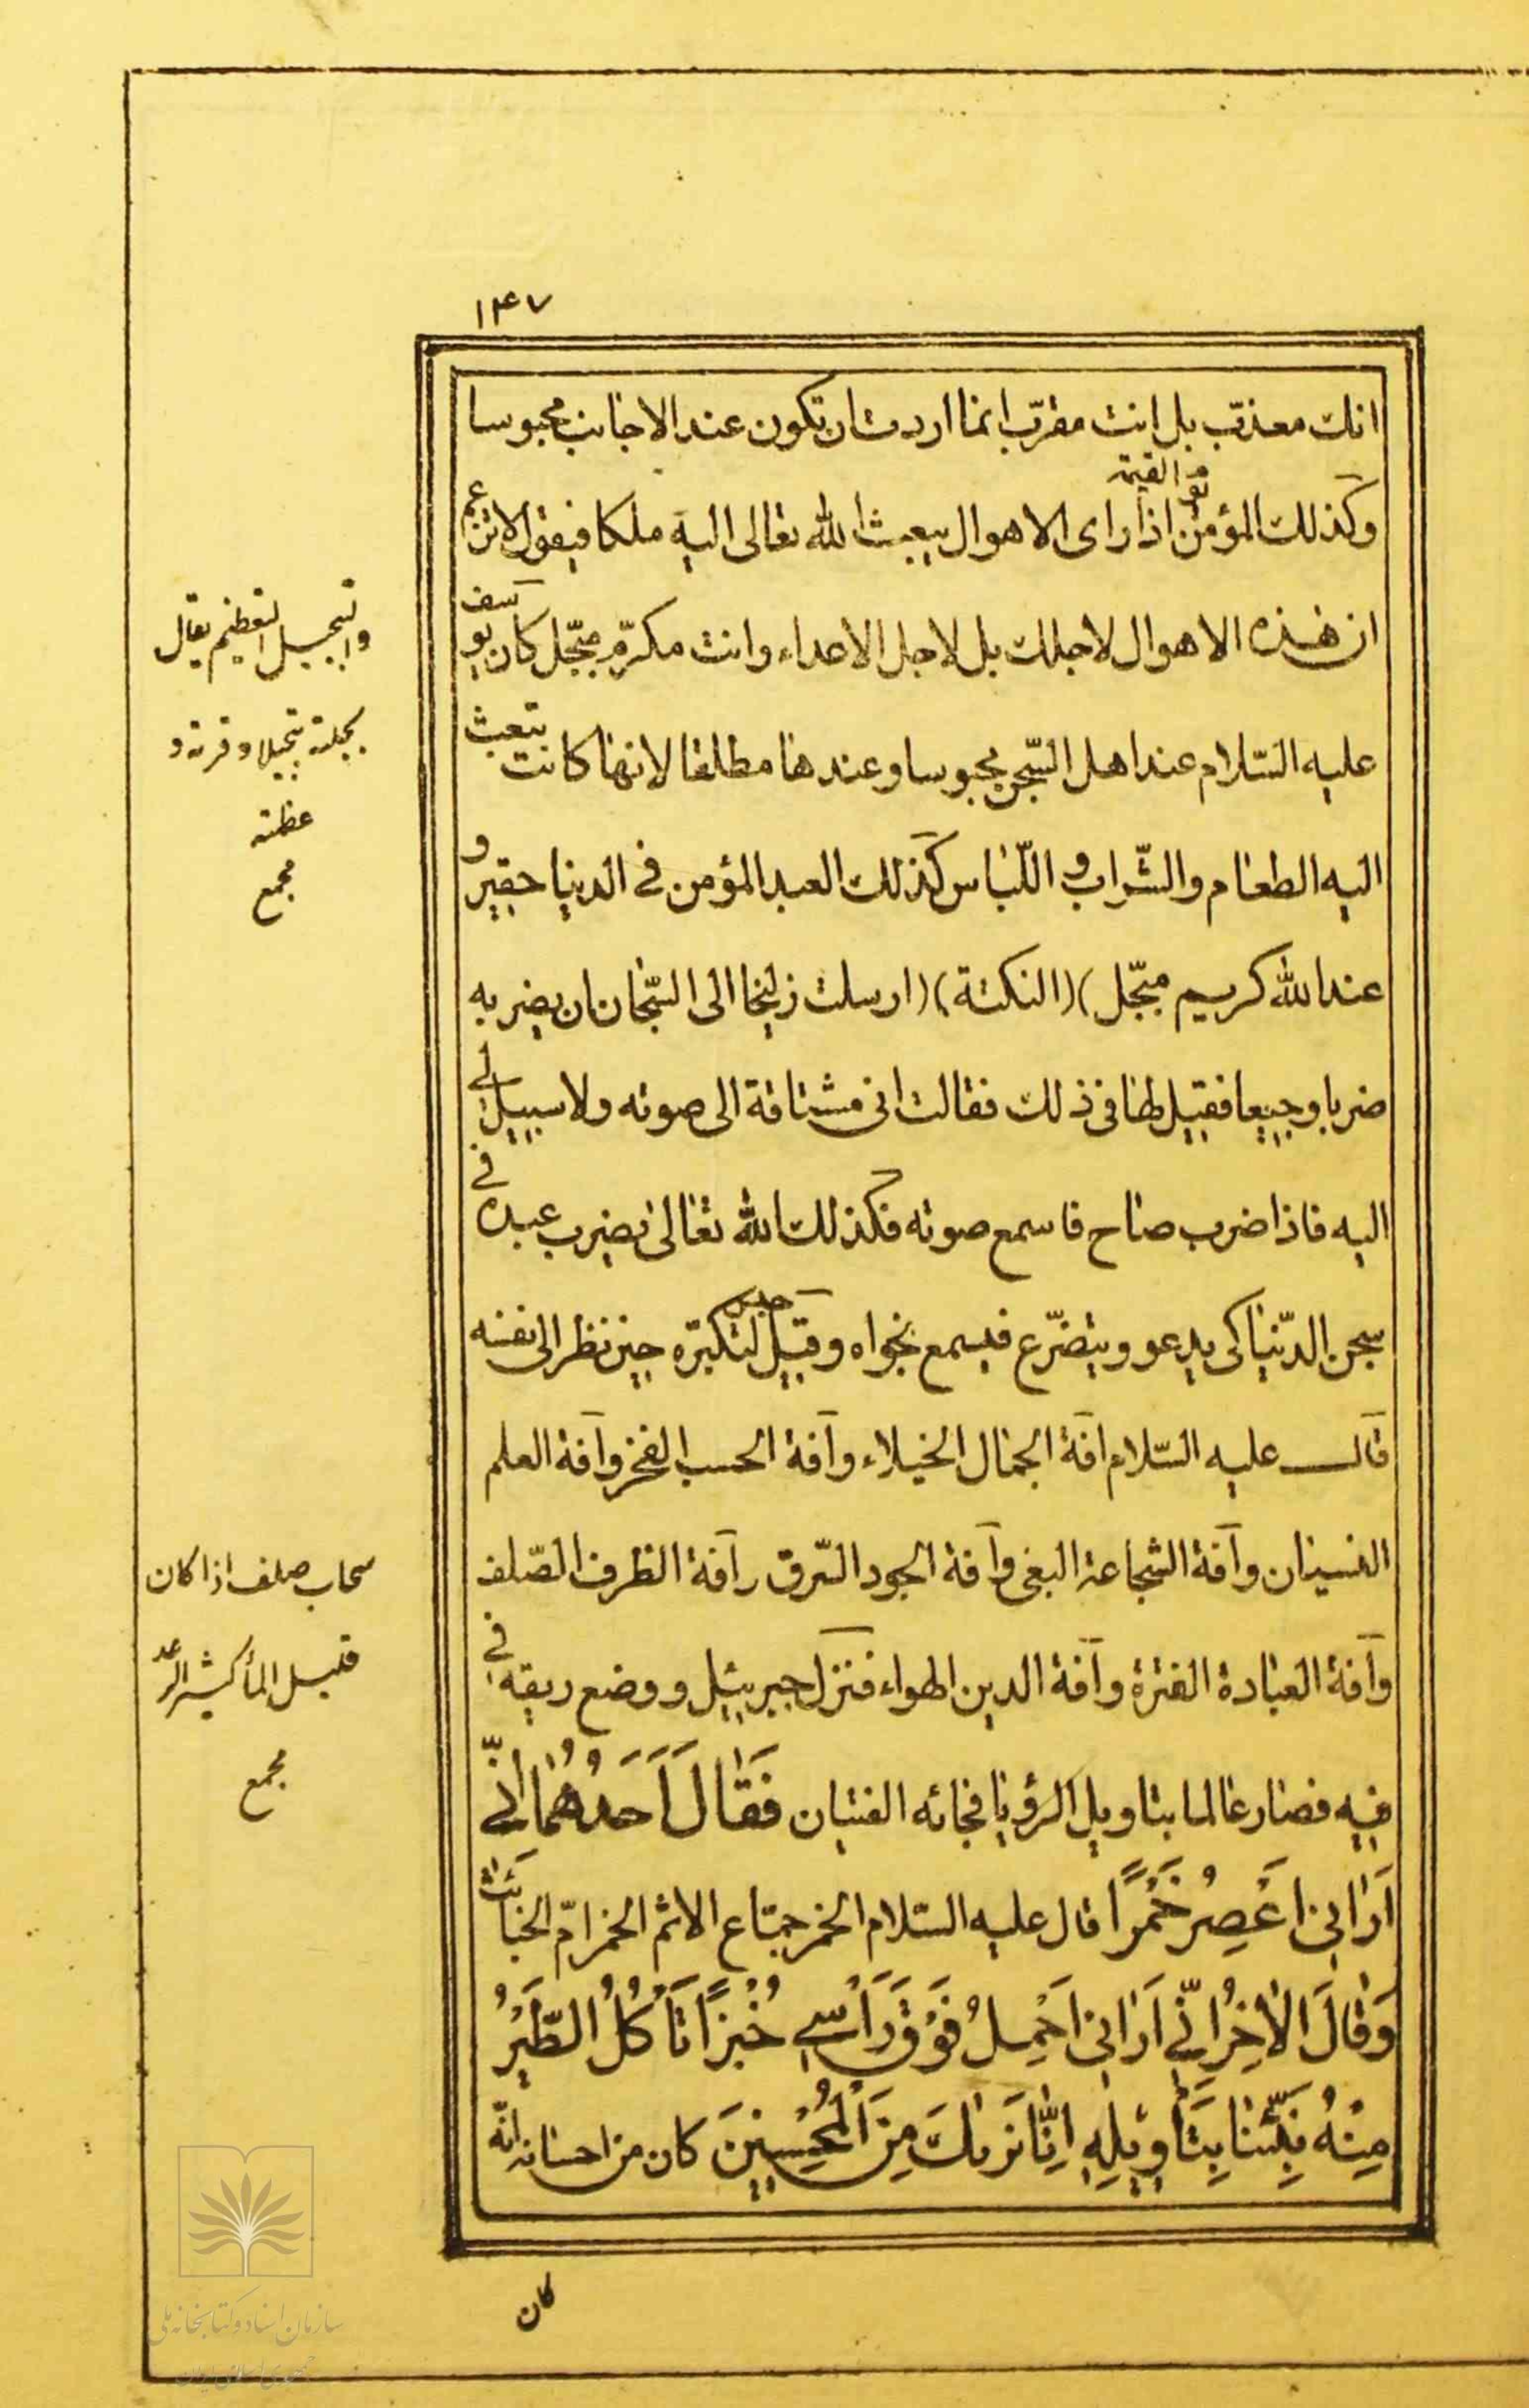 ١٤٧
انك معذب بل انت مقرّب انما اردت ان تكون عند الاجانب محبوسا
وكذلك المؤمن اذا راى الاهوال يوم القيمة يبعث الله تعالى اليه ملكا فيقول لا تزعم
ان هذه الاهوال لاجلك بل لاجل الاعداء وانت مكرّم مبجّل كان يوسف
عليه السّلام عند اهل السّجن محبوسا وعندها مطلقا لانها كانت تبعث
اليه الطعام والشّراب و اللّباس كذلك العبد المؤمن فى الدنيا حقير و
عند الله كريم مبجّل) (النكتة) (ارسلت زليخا الى السّجان ان يضربه
ضربا وجيعا فقيل لها فى ذلك فقالت انى مشتاقة الى صوته ولا سبيل لى
اليه فاذا ضرب صاح فاسمع صوته فكذلك الله تعالى يضرب عبده فى
سجن الدّنيا كى يدعو ويتضرّع فيسمع نجواه وقيل حبس لتكبّره حين نظر الى نفسه
قال عليه السّلام افة الجمال الخيلاء وآفة الحسب الفخر وآفة العلم
النسيان وآفة الشجاعة البغى وآفة الجود السّرف وآفة الظرف الصّلف
وآفة العبادة الفترة وآفة الدين الهواء فنزل جبرئيل ووضع ريقه فى
فيه فصار عالما بتاويل الرؤيا فجائه الفتيان فَقالَ اَحَدُهُما اِنّى
اَرانى اَعْصِرُ خَمْرًا قال عليه السّلام الخمر جماع الاثم الخمر امّ الخبائث
وَقالَ الْاخِرُ اِنّى اَرانى اَحْمِلُ فَوْقَ رَاْسى خُبْزًا تَاْكُلُ الطَّيْرُ
مِنْهُ نَبِّئْنا بِتَاْويلِهِ اِنّا نَريكَ مِنَ الْمُحْسِنينَ كان من احسانه انّه
كان
والتبجيل التعظيم يقال
بجلته تبجيلا وقرته و
عظمته
مجمع
سحاب صلف اذا كان
قليل الماء كثير الرعد
مجمع
سازمان اسناد و کتابخانه ملی
جمهوری اسلامی ایران